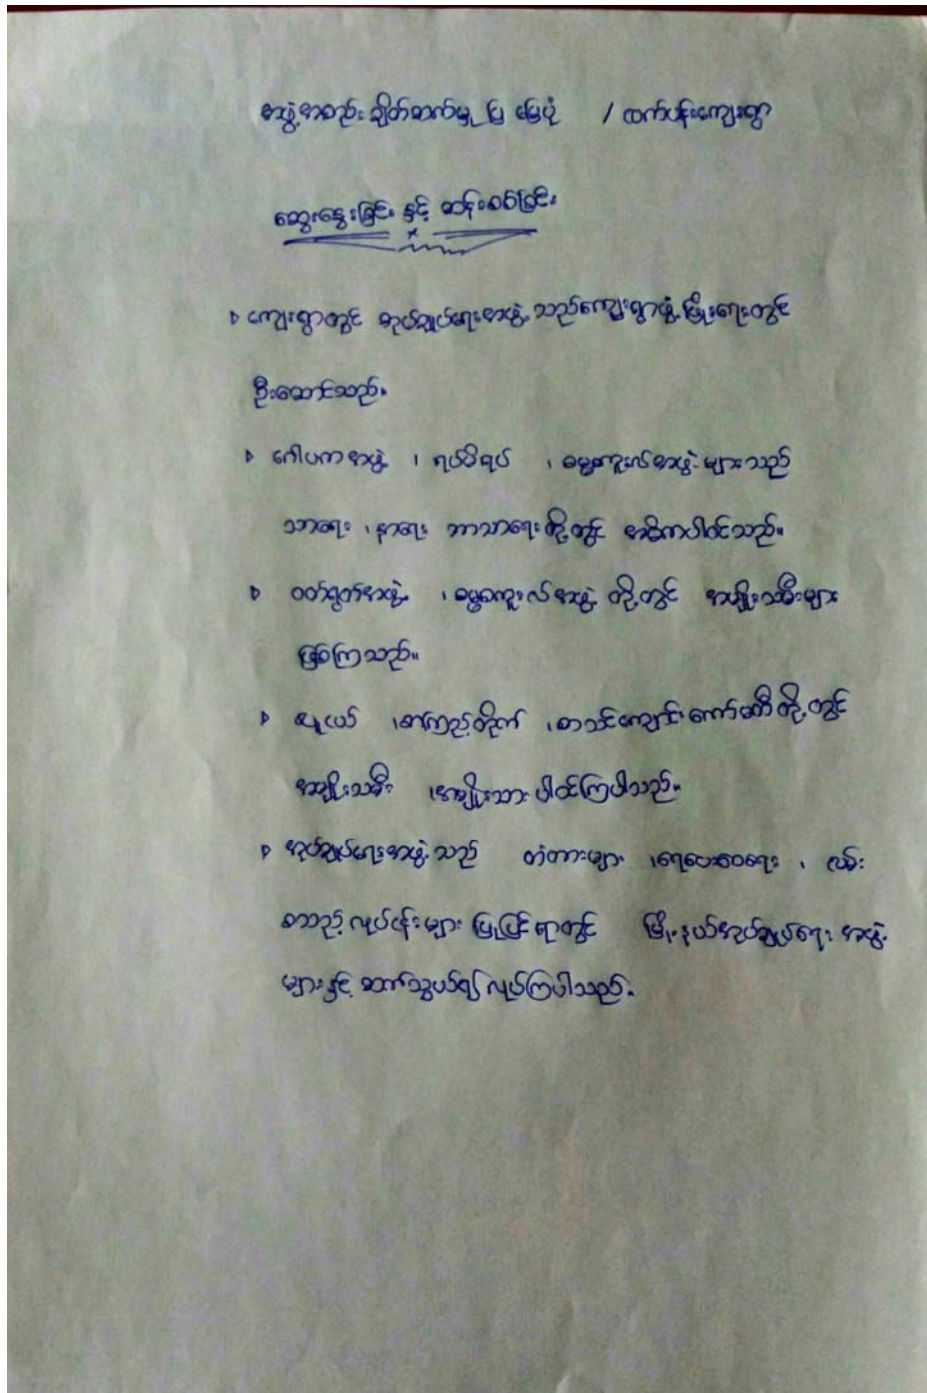 အဖွဲ့အစည်း ချိတ်ဆက်မှု ပြ မြေပုံ / ထက်ပန်းကျေးရွာ
ဆွေးနွေးခြင်း နှင့် ဆန်းစစ်ခြင်း
ကျေးရွာတွင် အုပ်ချုပ်ရေးအဖွဲ့ သည်ကျေးရွာဖွံ့ဖြိုးရေးတွင်
ဦးဆောင်သည်။
ဂေါပကအဖွဲ့ ၊ ရပ်မိရပ်ဖ ၊ ဓမ္မစကူးလ်အဖွဲ့များသည်
သာရေး ၊ နာရေး ဘာသာရေးတို့တွင် အဓိကပါဝင်သည်။
ဝတ်ရွတ်အဖွဲ့ ၊ ဓမ္မစကူးလ်အဖွဲ့ တို့တွင် အမျိုးသမီးများ
ဖြစ်ကြသည်။
လူငယ် ၊ စာကြည့်တိုက် ၊ စာသင်ကျောင်းကော်မတီ တို့တွင်
အမျိုးသမီး ၊ အမျိုးသား ပါဝင်ကြပါသည်။
အုပ်ချုပ်ရေးအဖွဲ့သည် တံတားများ ၊ ရေပေးဝေရေး ၊ လမ်း
စသည့်လုပ်ငန်းများ ပြုပြင်ရာတွင် မြို့နယ်အုပ်ချုပ်ရေး အဖွဲ့
များနှင့် ဆက်သွယ်၍ လုပ်ကြပါသည်။